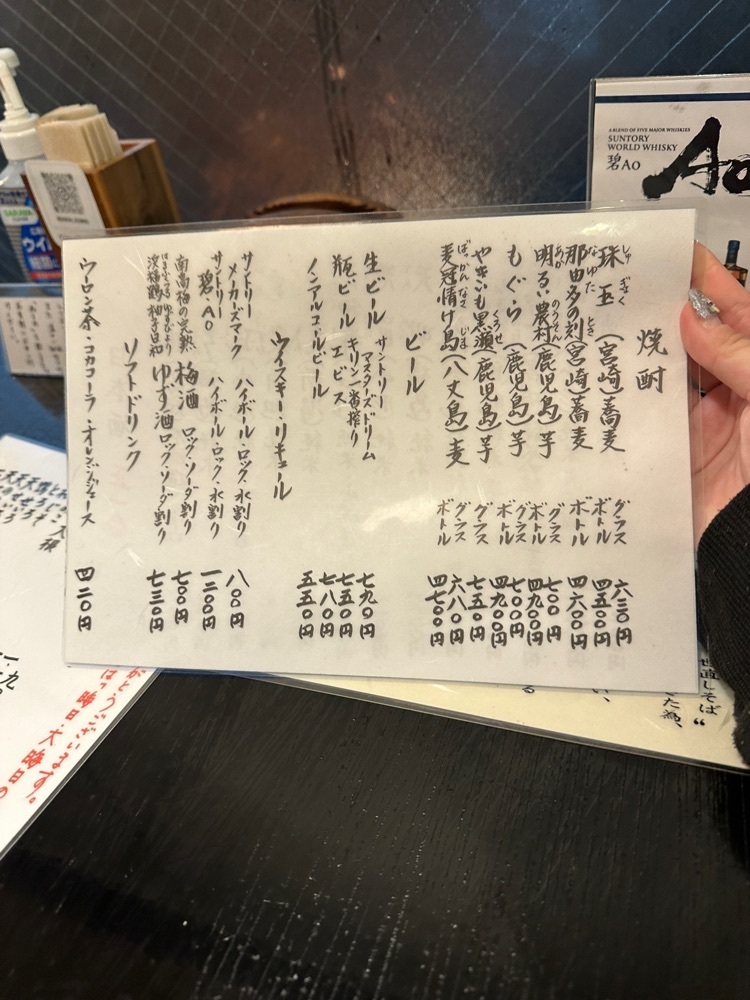 焼酎
珠玉 (宮崎) 蕎麦 グラス 六三〇円
しゅ ぎょく
ボトル 四五〇〇円
那由多の刻 (宮崎) 蕎麦 ボトル 四六〇〇円
なゆた とき
明るい農村 (鹿児島) 芋 グラス 七〇〇円
あか のうそん
ボトル 四九〇〇円
もぐら (鹿児島) 芋 グラス 七〇〇円
ボトル 四九〇〇円
やきいも黒瀬 (鹿児島) 芋 グラス 七五〇円
くろせ
麦冠情け島 (八丈島) 麦 グラス 六八〇円
ばっかん なさ じま
ボトル 四七〇〇円
ビール
生ビール サントリー マスターズドリーム 七九〇円
瓶ビール キリン一番搾り 七五〇円
エビス 七八〇円
ノンアルコールビール 五五〇円
ウイスキー・リキュール
サントリー メーカーズマーク ハイボール・ロック・水割り 八〇〇円
サントリー 碧・AO ハイボール・ロック・水割り 一二〇〇円
南高梅の完熟 梅酒 ロック・ソーダ割り 七〇〇円
浜福鶴 柚子日和 ゆず酒 ロック・ソーダ割り 七三〇円
はまふくつる ゆずびより
ソフトドリンク
ウーロン茶・コカコーラ・オレンジジュース 四二〇円
A BLEND OF FIVE MAJOR WHISKIES
SUNTORY
WORLD WHISKY
碧AO
Ao
SARAYA
がとうございます。
晦日大晦日の